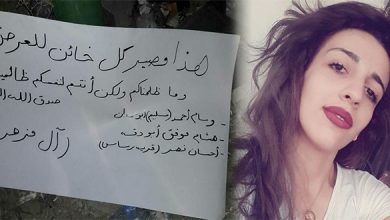 هذا مصير كل خائن للعرض
وما ظلمناكم ولكن أنتم لنفسكم ظالمين
صدق الله ال
- وسام أحمد (سليم)
- هشام موفق أبو دف
- أحسان نصر (قرب رساس)
(آل مزهر